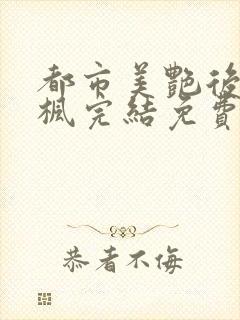 都市美艷後
楓完結免費
恭者不侮